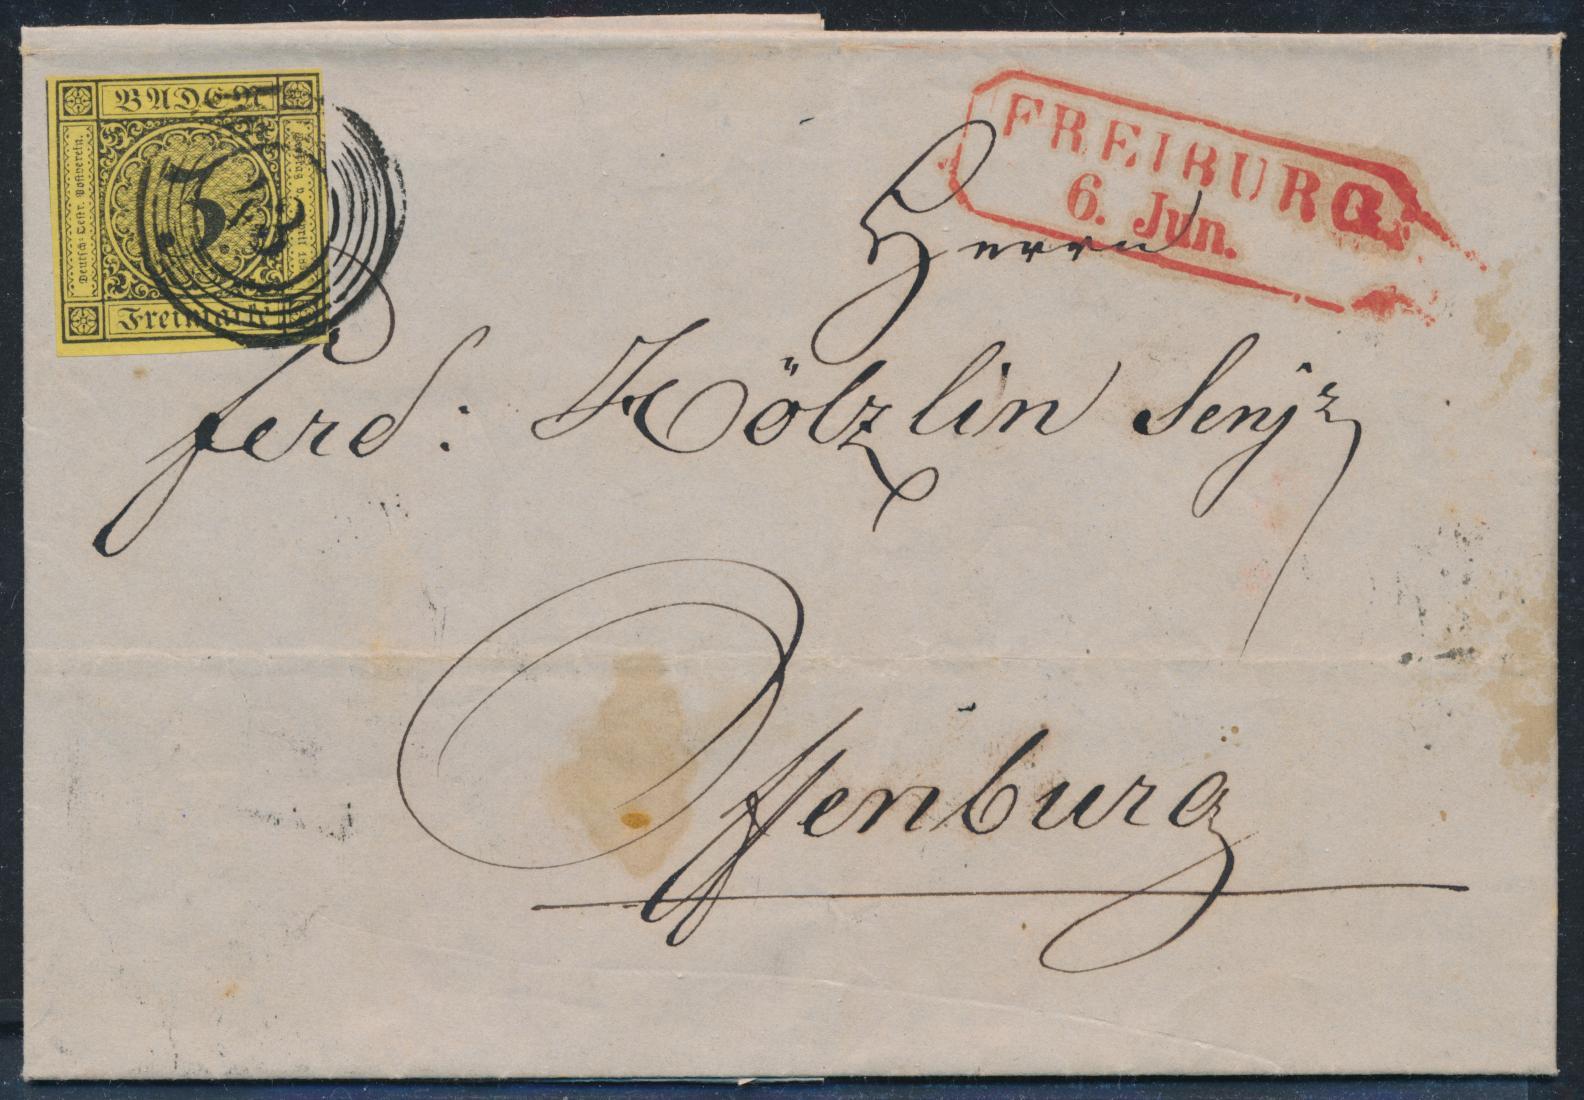 BADEN
Deutsch-Oestr. Postverein.
Freimarke
FREIBURG
6. Jun.
Herrn
Ferd: Hölzlin Senjr
Offenburg